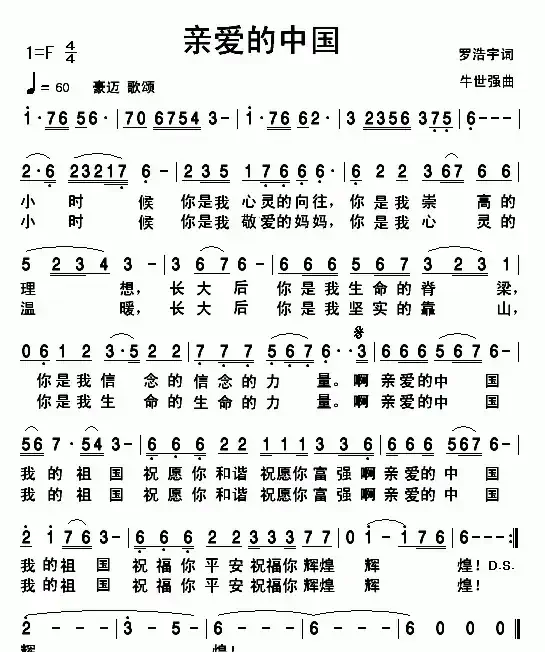 亲爱的中国
1=F 4/4
罗浩宇词
♩= 60 豪迈 歌颂
牛世强曲
1·76 56·|70 6754 3-|1·76 62·|3 2356 375|6---|
2·6 23217 6-|235 1766 6·|6 2 2 3 67 6 6
小 时 候 你是我 心灵的向往，你 是 我 崇 高 的
小 时 候 你是我 敬爱的妈妈，你 是 我 心 灵 的
5 2 3 4 3-|3 6 7 6-|666 5 67 3 23 1|
理 想， 长 大 后 你 是 我 生 命 的 脊 梁，
温 暖， 长 大 后 你 是 我 坚 实 的 靠 山，
06 1 2 3·5 2 2|7 7 7 567 6··3|666 5 567 6-|
你是我 信 念 的 信 念 的 力 量。啊 亲爱的中 国
你是我 生 命 的 生 命 的 力 量。啊 亲爱的中 国
56 7·54 3-|666 22 111 336|666 5 567 6-|
我 的 祖 国 祝愿你 和谐 祝愿你 富强啊 亲爱的 中 国
我 的 祖 国 祝愿你 和谐 祝愿你 富强啊 亲爱的 中 国
2 1 76 3-|666 22 333 77|0 0 1-|-176|6---:||
我的祖 国 祝福你 平安 祝福你 辉煌 辉 煌！D.S.
我的祖 国 祝福你 平安 祝福你 辉煌 辉 煌！
2--3|5--7|6---|6---|6 0 0 0‖
辉 煌！